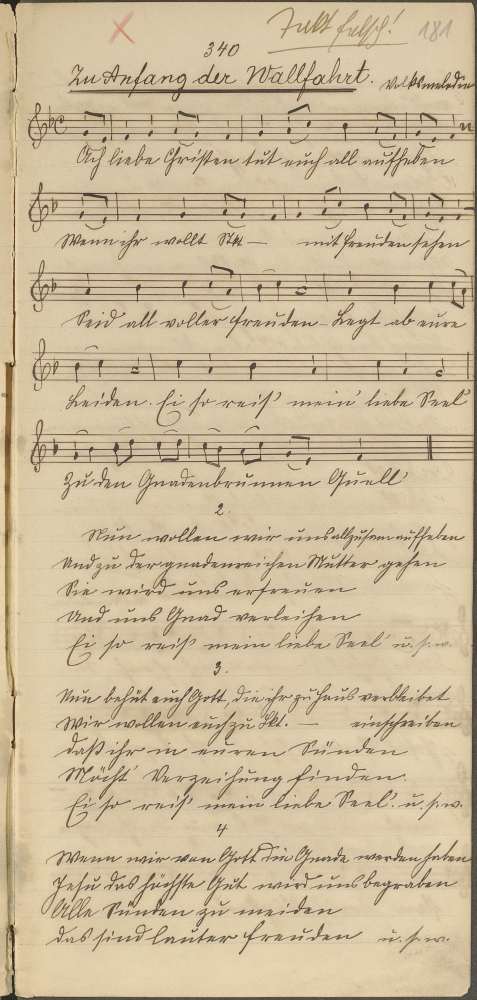 Takt falsch! 181
340
Zu Anfang der Wallfahrt. Volksmelodie
Ach liebe Christen tut euch all aufheben
Wenn ihr wollt Skt — mit Freuden sehen
Seid all voller Freuden - Legt ab eure
Leiden. Ei so reis' mein' liebe Seel'
Zu den Gnadenbrunnen Quell'
2.
Nun wollen wir uns allzusam aufheben
Und zu der gnadenreichen Mutter gehen
Sie wird uns erfreuen
Und uns Gnad verleihen
Ei so reis' mein liebe Seel' u.s.w.
3.
Nun behüt euch Gott, die ihr zu Haus verbleibet
Wir wollen euch zu Skt. — einschreiben
Daß ihr in euren Sünden
Möcht' Verzeihung finden.
Ei so reis' mein liebe Seel'. u.s.w.
4
Wenn wir von Gott die Gnade werden haben
Jesu das höchste Gut wird uns begraben
Alle Sünden zu meiden
Das sind lauter Freuden u.s.w.